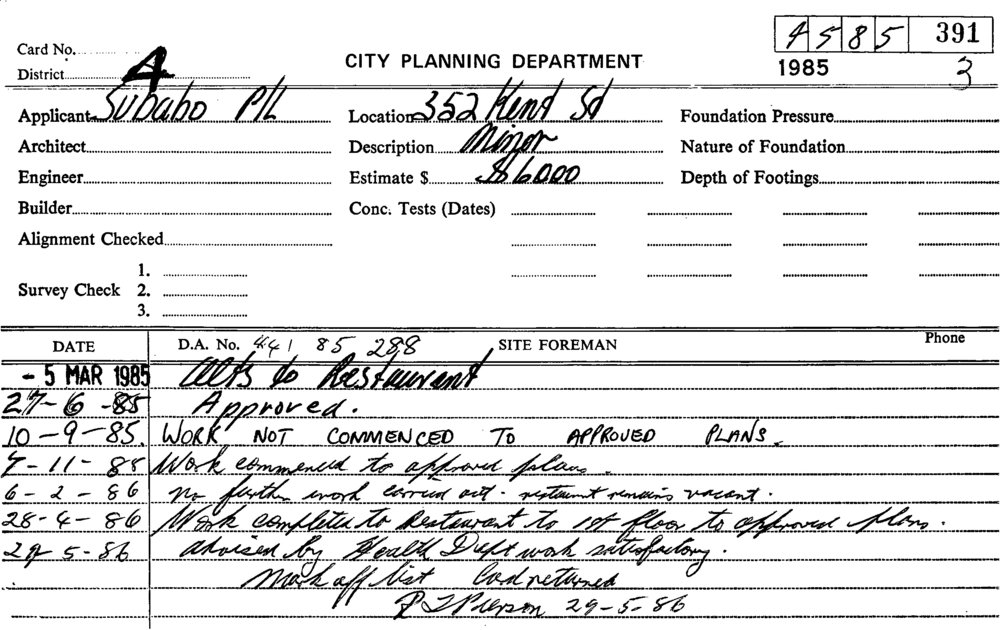 4585 391
Card No.
District A CITY PLANNING DEPARTMENT 1985 3
Applicant Subabo P/L Location 352 Kent St Foundation Pressure
Architect Description Minor Nature of Foundation
Engineer Estimate $ $6000 Depth of Footings
Builder Conc. Tests (Dates)
Alignment Checked
1.
Survey Check 2.
3.
DATE D.A. No. 441 85 288 SITE FOREMAN Phone
- 5 MAR 1985 Alts to Restaurant
27-6-85 Approved.
10-9-85. WORK NOT COMMENCED TO APPROVED PLANS.
7-11-85 Work commenced to approved plans.
6-2-86 no further work carried out - restaurant remains vacant.
28-4-86 Work completed to Restaurant to 1st floor to approved plans.
29 5-86 advised by Health Dept work satisfactory.
Mark off list Card returned
29-5-86